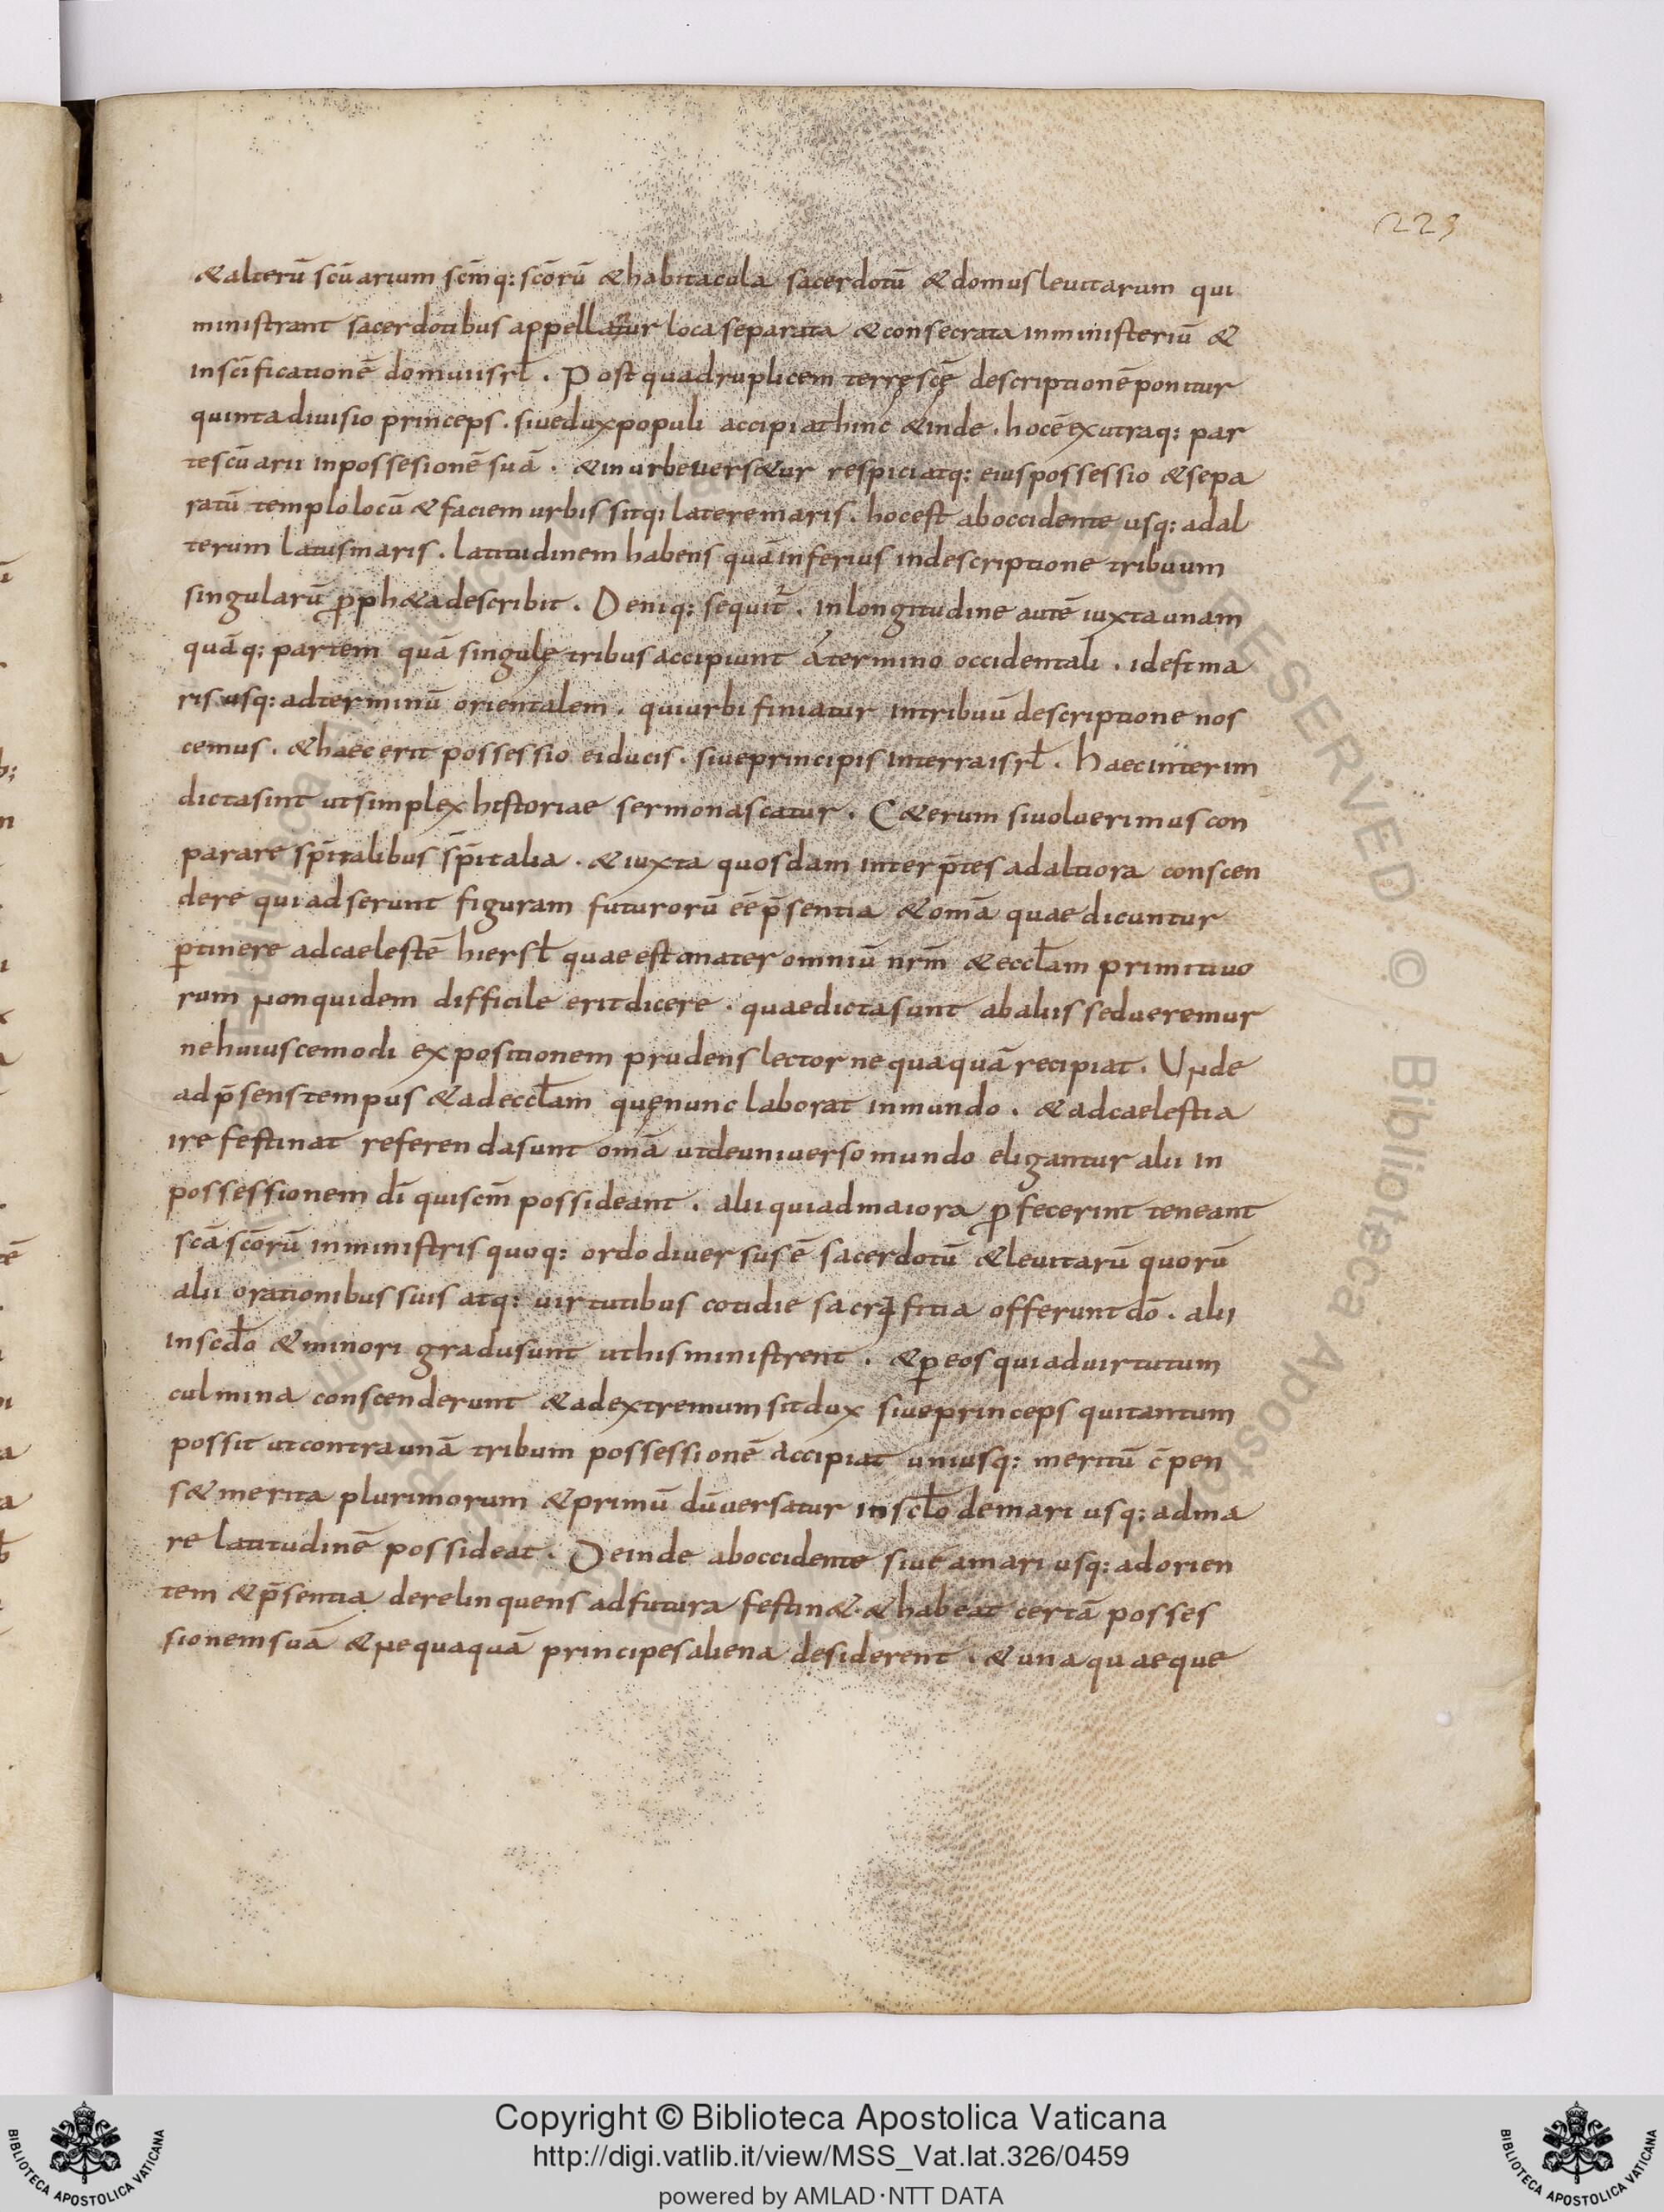 223
&alterū scūarium scm̄q: scōrū &habitacula sacerdotū &domus leuitarum qui
ministrant sacerdotibus appellantur loca separata &consecrata inministeriū &
insc̄ificationē domuiisrł . Post quadruplicem terręscę̄ descriptionē ponitur
quinta diuisio princeps . siuedux populi accipiat hinc &inde . hocē exutraq: par
tescūarii inpossesionē suā . &inurbeuers&ur respiciatq: eius possessio &sepa
ratū templo locū &faciem urbis sitqi latere maris . hocest aboccidente usq: adal
terum latus maris . latitudinem habens quāinferius indescriptione tribuum
singularū ꝓph&a describit . Deniq: sequit̄ . inlongitudine autē iuxta unam
quāq: partem quā singulę tribus accipiunt átermino occidentali . idest ma
ris usq: adterminū orientalem . quiurbi finiatur intribuū descriptione nos
cemus . &haec erit possessio eiducis . siueprincipis interraisrł . Haecinterim
dictasint utsimplex historiae sermonascatur . C&erum siuoluerimus con
parare sp̄italibus sp̄italia . &iuxta quosdam interp̄tes adaltiora conscen
dere quiadserunt figuram futurorū ēēp̄sentia &omā quae dicuntur
ꝑtinere adcaelestē hiersł quae est mater omniū nrm̄ &eccłam primitiuo
rum nonquidem difficile erit dicere . quaedictasunt abaliis sedueremur
nehuiuscemodi expositionem prudens lector nequaquā recipiat . Unde
adp̄sens tempus &adeccłam quęnunc laborat inmundo . &adcaelestia
ire festinat referendasunt omā utdeuniuersomundo eligantur alii in
possessionem dī quiscm̄ possideant . alii quiadmaiora ꝓfecerint teneant
scā scōrū inministris quoq: ordo diuersus ē sacerdotū &leuitarū quorū
alii orationibus suis atq: uirtutibus cotidie sacrifitia offerunt dō . alii
inscdło &minori gradusunt uthis ministrent . &ꝑeos quiaduirtutum
culmina conscenderunt &adextremum sitdux siueprinceps quitantum
possit utcontraunā tribum possessionē accipiat uniusq: meritū c̄pen
s&merita plurimorum &primū dūuersatur inscło demari usq: adma
re latitudinē possideat . Deinde aboccidente siue amari usq: adorien
tem &p̄sentia derelinquens adfutura festin& . &habeat certā posses
sionemsuā &nequaquā principes aliena desiderent . &unaquaeque
Copyright © Biblioteca Apostolica Vaticana
http://digi.vatlib.it/view/MSS_Vat.lat.326/0459
powered by AMLAD·NTT DATA
BIBLIOTECA APOSTOLICA VATICANA
BIBLIOTECA APOSTOLICA VATICANA